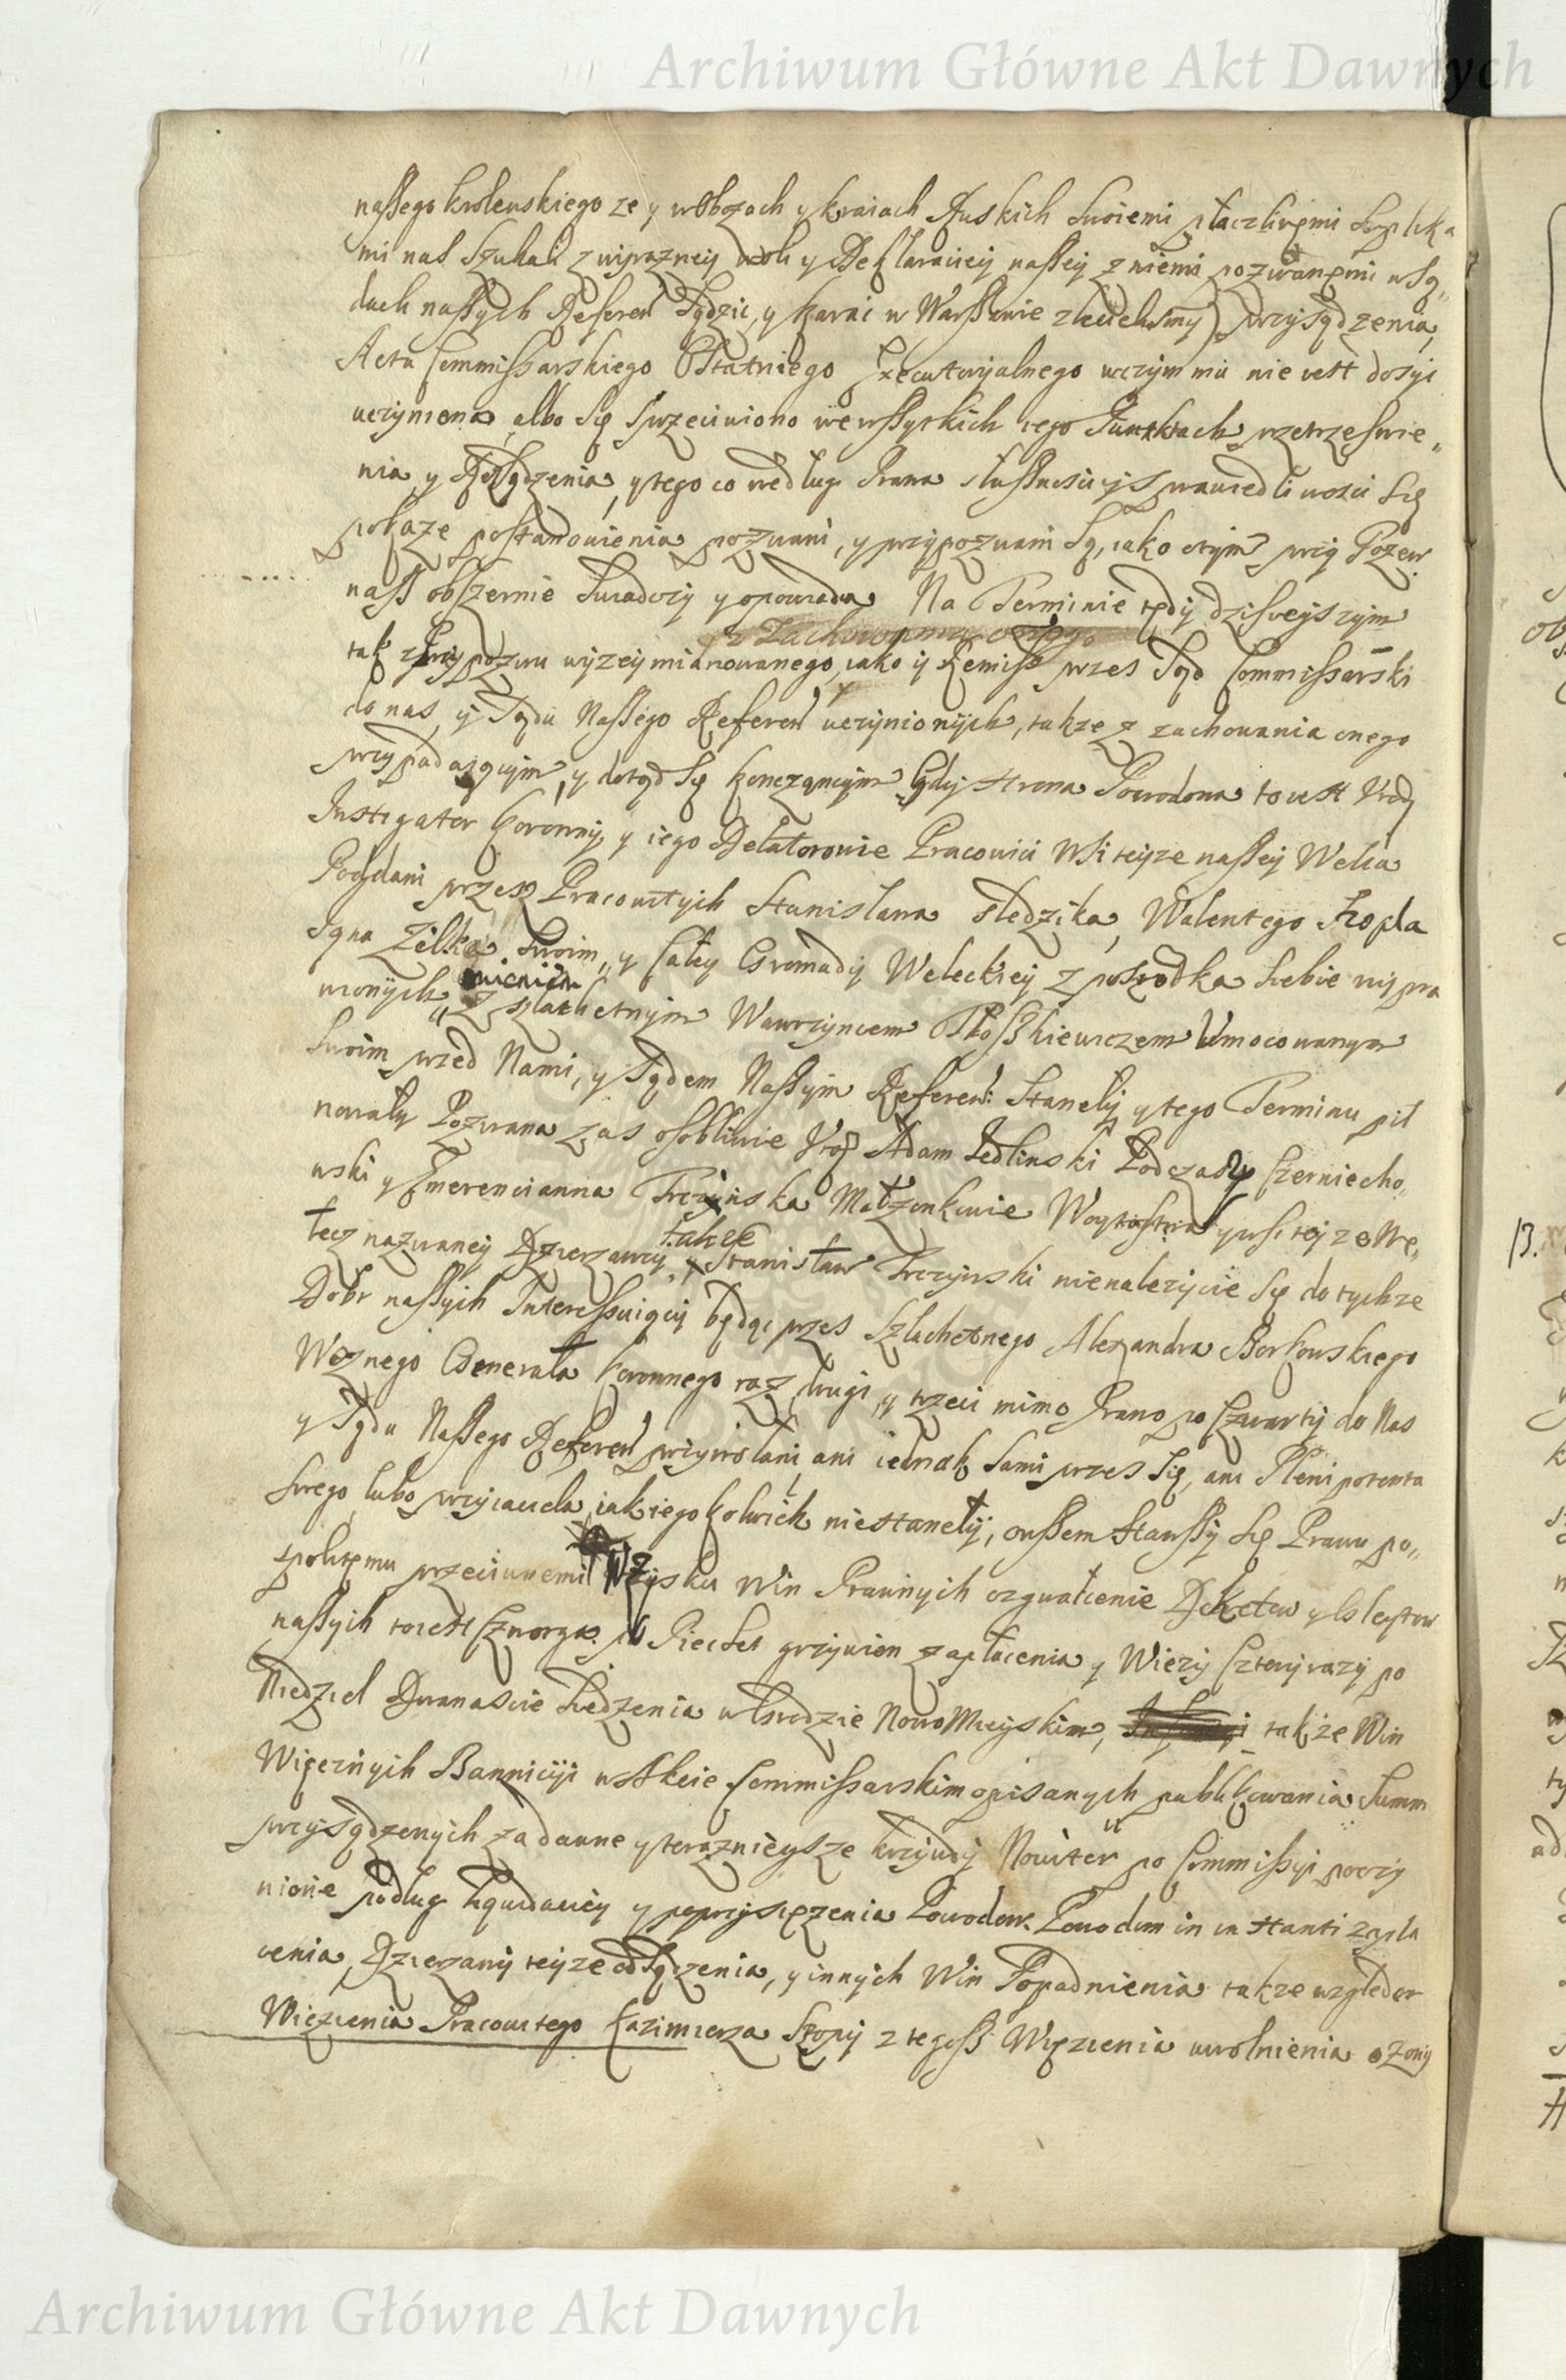 Archiwum Główne Akt Dawnych
naszego krolewskiego ze y w obozach y kraiach Ruskich swoiemi płaczliwemi suplika
mi nas szukali z wyrazney woli y Deklaraciey naszey z niemi pozwanemi w Są„
dach naszych Referen Sądzic, y karac w Warszawie zlecielismy) przysądzenia,
Actu Commissarskiego Ostatniego Executoryalnego w czym mu nie iest dosyc
uczyniono, albo się sprzeciwiono we wszytkich iego Punktach przetrzesnie„
nia, y Osądzenia, y tego co według Prawa słusznosci y sprawiedliwosci się
pokaze postanowienia pozwani, y przypozwani są, iako o tym przy Pozew
nasz obszernie swiadczy y opowiada Na Terminie tedy dzisieyszym
z Zachowania onego
tak z przypozwu wyzey mianowanego, iako y Remiss przes Sąd Commissarski
do nas y Sądu Naszego Referen uczynionych, takze z zachowania onego
przypadaiącym, y dotąd się konczącym Gdy strona Powodowa to iest Urodz
Instigator koronny, y iego Delatorowie Pracowici Wsi teyze naszey Welcza
Poddani przesz Pracowitych Stanisława sledzika, Walentego Szopla
Igna Zelka swoim, y całey Gromady Weleckiey z posrodka siebie wypra
wionych imieniem z szlachetnym Wawrzyncem Ploszkiewiczem Umocowanym
swoim przed Nami, y Sądem Naszym Referen: Stanęły y tego Terminu pil
nowały Pozwana zas osobliwie Urodz Adam Jedlinski Podczaszy Czerniecho„
wski y Emerencianna Trczinska Małzonkowie Woytostwa y wsi teyze We„
lecz nazwaney Dzierzawcy, także Stanisław Trczynski nienalezycie się do tychze
Dobr naszych Interessuiący będąc przes Szlachetnego Alexandra Borkowskiego
Woznego Generała koronnego raz, drugi, y trzeci mimo Prawo po czwarty do Nas
y Sądu Naszego Referen przywołani, ani iednak sami przes się, ani Plenipotenta
swego, lubo przyiaciela iakiegokolwiek niestanęły, owszem stawszy się Prawu po„
spolitemu przeciwnemi W zysku Win Prawnych o zgwałcenie Dekretow y Glejtow
naszych to iest Czworga po Piecset grzywien zapłacenia y Wiezy Cztery razy po
Niedziel Dwanascie siedzenia w Grodzie Nowomieyskim, także Win
Wieczystych Banniciyi w Akcie Commissarskim opisanych publikowania Summ
przysądzonych za dawne y teraznieysze krzywdy Noviter po Commissyi poczy
nione podług liquidaciey y poprzysiężenia Powodow Powodom in instanti zapła
cenia, Dzierzawy teyze odsądzenia, y innych Win Popadnienia takze względem
Więzienia Pracowitego Kazimierza Szopy z tegosz Więzienia uwolnienia o zony
13.
Archiwum Główne Akt Dawnych